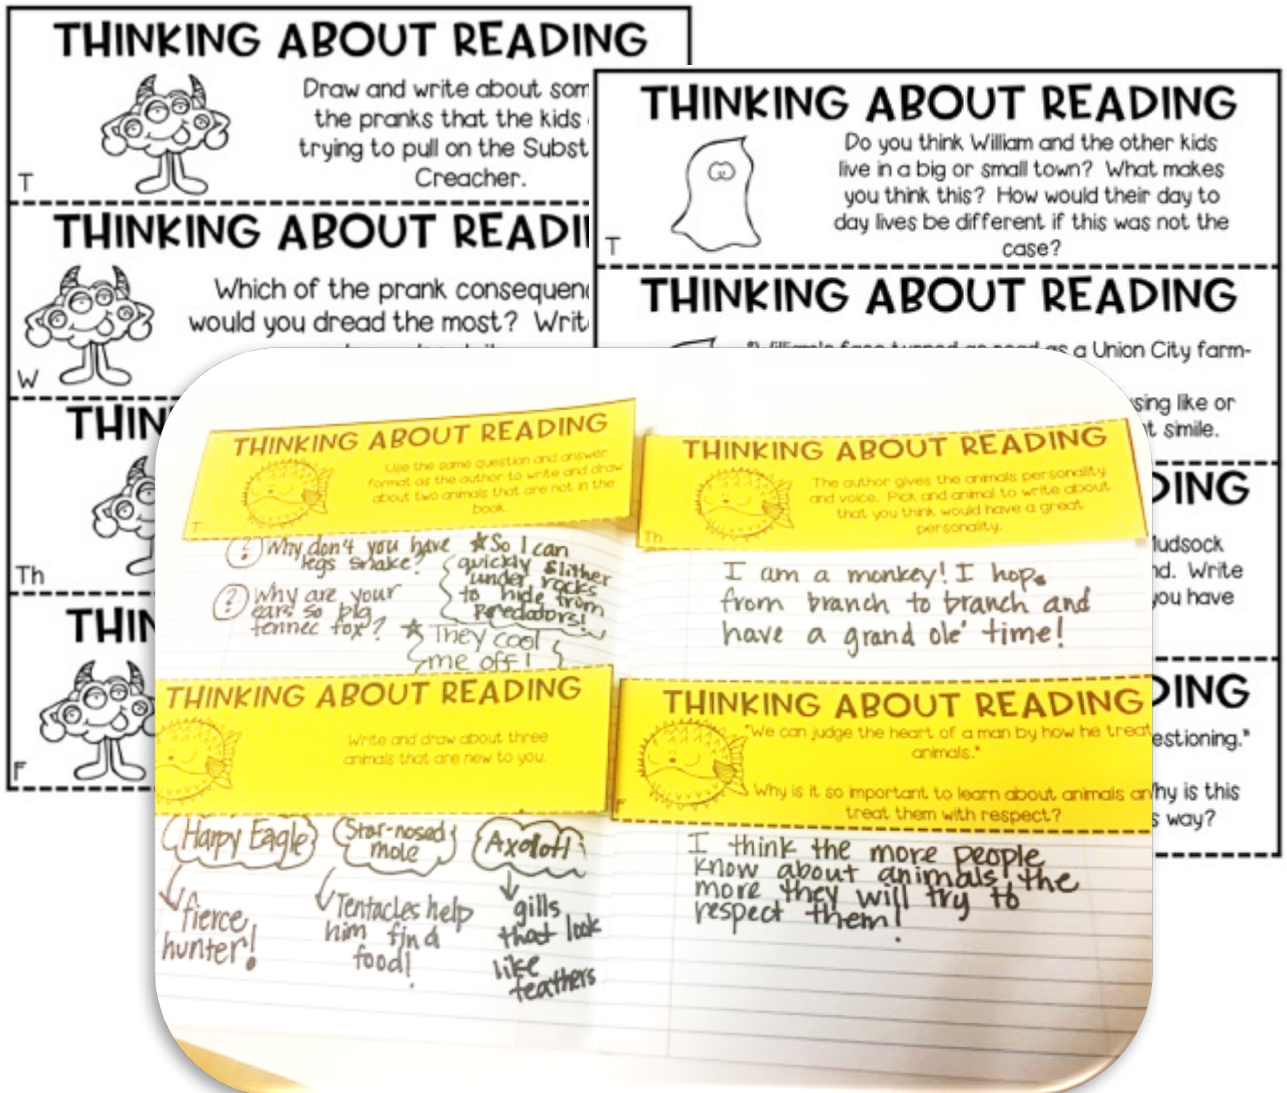 THINKING ABOUT READING
Draw and write about som
the pranks that the kids
trying to pull on the Subst
Creacher.
T
THINKING ABOUT READI
Which of the prank consequen
would you dread the most? Writ
W
THIN
Th
THIN
F
THINKING ABOUT READING
Do you think William and the other kids
live in a big or small town? What makes
you think this? How would their day to
day lives be different if this was not the
case?
T
THINKING ABOUT READING
"William's face turned as red as a Union City farm-
sing like or
t simile.
DING
Mudsock
nd. Write
you have
DING
estioning."
hy is this
s way?
THINKING ABOUT READING
Use the same question and answer
format as the author to write and draw
about two animals that are not in the
book.
T
? Why don't you have
legs snake?
★So I can
quickly slither
under rocks
to hide from
Peredators!
? Why are your
ears so big
fennec fox?
★ They cool
me off!
THINKING ABOUT READING
The author gives the animals personality
and voice. Pick and animal to write about
that you think would have a great
personality.
Th
I am a monkey! I hop
from branch to branch and
have a grand ole' time!
THINKING ABOUT READING
Write and draw about three
animals that are new to you.
Harpy Eagle
fierce
hunter!
Star-nosed
mole
Tentacles help
him find
food!
Axolotl
gills
that look
like
feathers
THINKING ABOUT READING
"We can judge the heart of a man by how he treat
animals."
Why is it so important to learn about animals an
treat them with respect?
F
I think the more people
know about animals the
more they will try to
respect them!